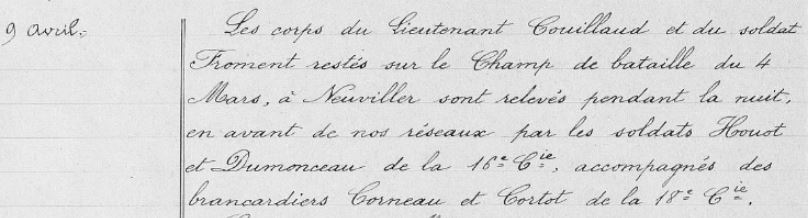 9 avril. Les corps du Lieutenant Couillaud et du soldat
Froment restés sur le Champ de bataille du 4
Mars, à Neuviller sont relevés pendant la nuit,
en avant de nos réseaux par les soldats Houot
et Dumonceau de la 16e Cie, accompagnés des
brancardiers Corneau et Cortot de la 18e Cie.